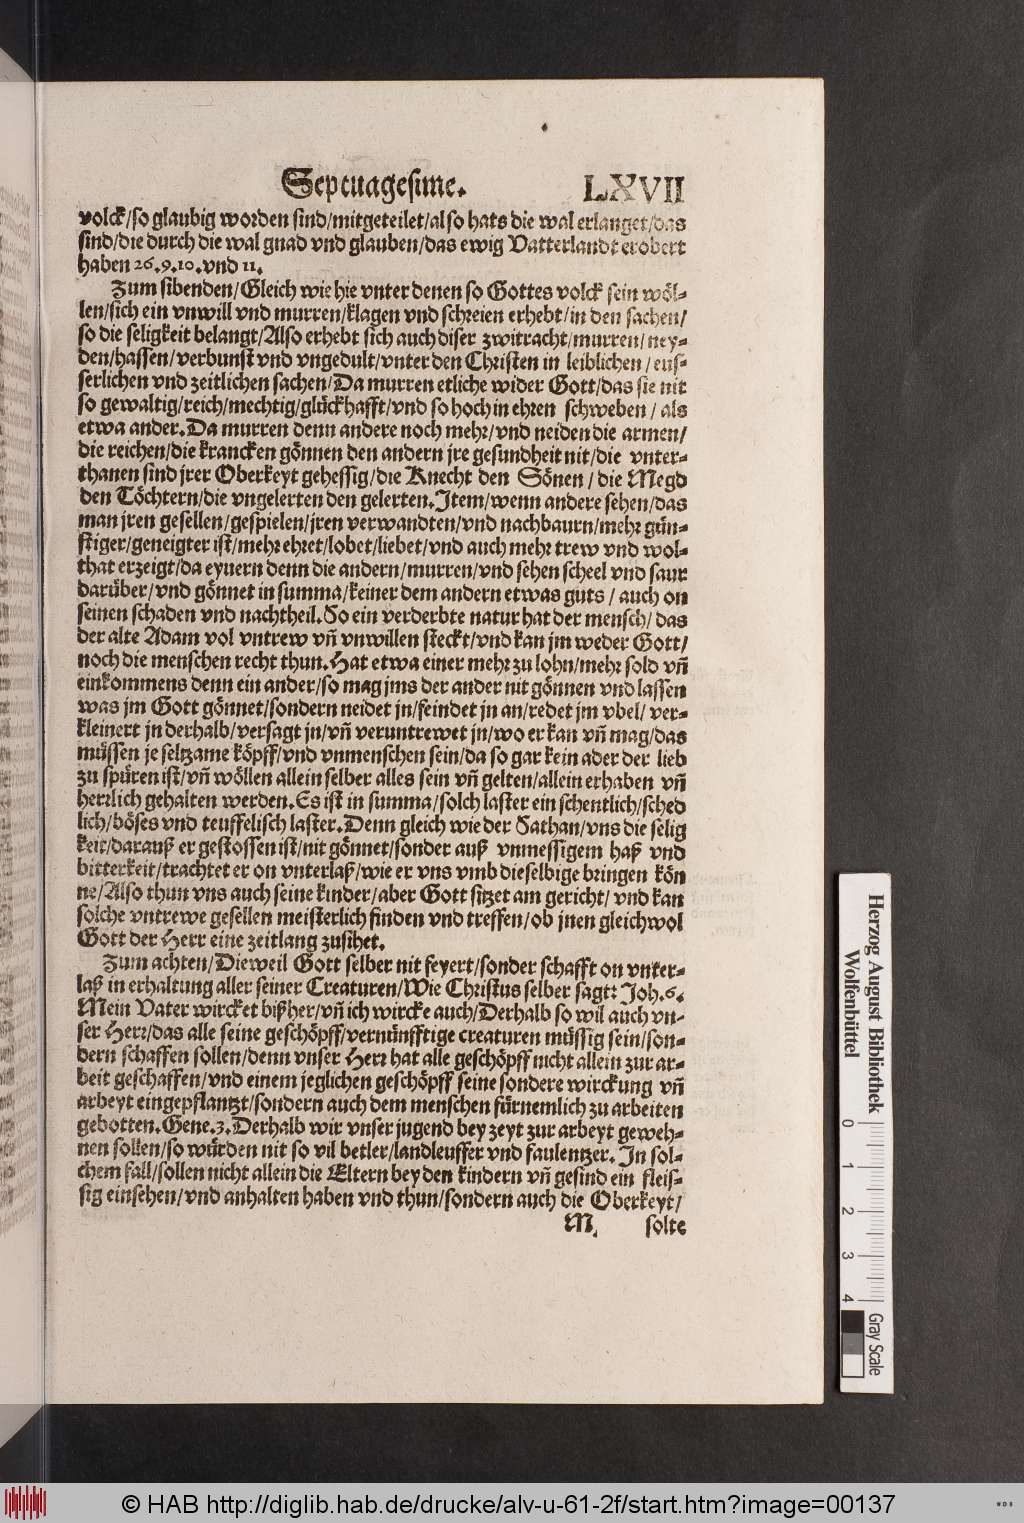 Septuagesime. LXVII
volck/so glaubig worden sind/mitgeteilet/also hats die wal erlanget/das
sind/die durch die wal gnad vnd glauben/das ewig Vatterlandt erobert
haben 26.9.10.vnd 11.
Zum sibenden/Gleich wie hie vnter denen so Gottes volck sein wöl-
len/sich ein vnwill vnd murren/klagen vnd schreien erhebt/in den sachen/
so die seligkeit belangt/Also erhebt sich auch diser zwitracht/murren/ney-
den/hassen/verbunst vnd vngedult/vnter den Christen in leiblichen/eus-
serlichen vnd zeitlichen sachen/Da murren etliche wider Gott/das sie nit
so gewaltig/reich/mechtig/glückhafft/vnd so hoch in ehren schweben/als
etwa ander.Da murren denn andere noch mehr/vnd neiden die armen/
die reichen/die krancken gönnen den andern jre gesundheit nit/die vnter-
thanen sind jrer Oberkeyt gehessig/die Knecht den Sönen/die Megd
den Töchtern/die vngelerten den gelerten.Item/wenn andere sehen/das
man jren gesellen/gespielen/jren verwandten/vnd nachbaurn/mehr gün-
stiger/geneigter ist/mehr ehret/lobet/liebet/vnd auch mehr trew vnd wol-
that erzeigt/da eyuern denn die andern/murren/vnd sehen scheel vnd saur
darüber/vnd gönnet in summa/keiner dem andern etwas guts/auch on
seinen schaden vnd nachtheil.So ein verderbte natur hat der mensch/das
der alte Adam vol vntrew vñ vnwillen steckt/vnd kan jm weder Gott/
noch die menschen recht thun.Hat etwa einer mehr zu lohn/mehr sold vñ
einkommens denn ein ander/so mag jms der ander nit gönnen vnd lassen
was jm Gott gönnet/sondern neidet jn/feindet jn an/redet jm vbel/ver-
kleinert jn derhalb/versagt jn/vñ veruntrewet jn/wo er kan vñ mag/das
müssen je seltzame köpff/vnd vnmenschen sein/da so gar kein ader der lieb
zu spüren ist/vñ wöllen allein selber alles sein vñ gelten/allein erhaben vñ
herrlich gehalten werden.Es ist in summa/solch laster ein schentlich/sched
lich/böses vnd teuffelisch laster.Denn gleich wie der Sathan/vns die selig
keit/darauß er gestossen ist/nit gönnet/sonder auß vnmessigem haß vnd
bitterkeit/trachtet er on vnterlaß/wie er vns vmb dieselbige bringen kön
ne/Also thun vns auch seine kinder/aber Gott sitzet am gericht/vnd kan
solche vntrewe gesellen meisterlich finden vnd treffen/ob jnen gleichwol
Gott der Herr eine zeitlang zusihet.
Zum achten/Dieweil Gott selber nit feyert/sonder schafft on vnter-
laß in erhaltung aller seiner Creaturen/Wie Christus selber sagt: Joh.6.
Mein Vater wircket bißher/vñ ich wircke auch/Derhalb so wil auch vn-
ser Herr/das alle seine geschöpff/vernünfftige creaturen müssig sein/son-
dern schaffen sollen/denn vnser Herr hat alle geschöpff nicht allein zur ar-
beit geschaffen/vnd einem jeglichen geschöpff seine sondere wirckung vñ
arbeyt eingepflantzt/sondern auch dem menschen fürnemlich zu arbeiten
gebotten.Gene.3.Derhalb wir vnser jugend bey zeyt zur arbeyt geweh-
nen sollen/so würden nit so vil betler/landleuffer vnd faulentzer.In sol-
chem fall/sollen nicht allein die Eltern bey den kindern vñ gesind ein fleis-
sig einsehen/vnd anhalten haben vnd thun/sondern auch die Oberkeyt/
M. solte
Herzog August Bibliothek
Wolfenbüttel
0 1 2 3 4
Gray Scale
© HAB http://diglib.hab.de/drucke/alv-u-61-2f/start.htm?image=00137